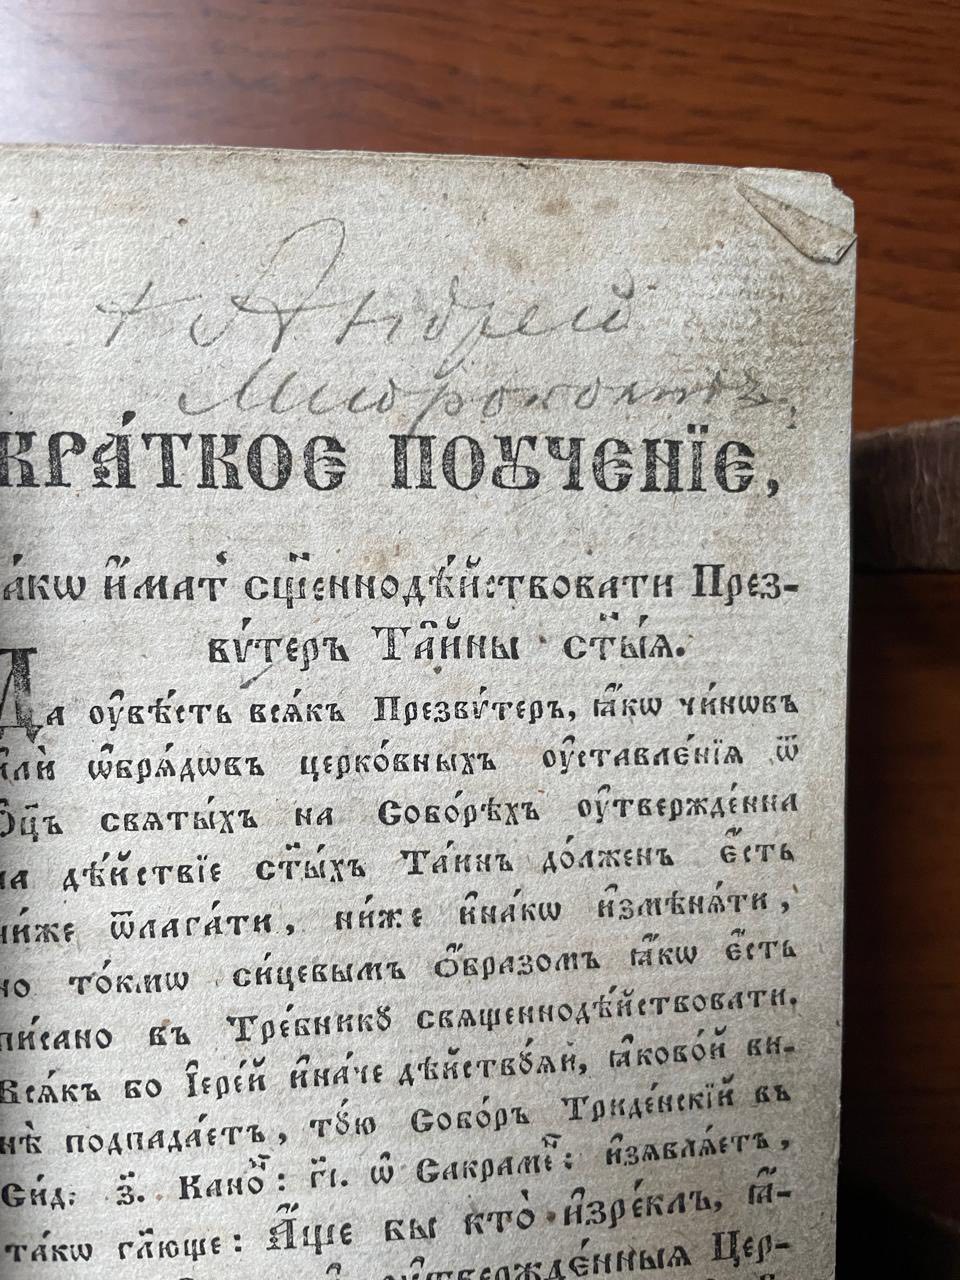 + Андрей
КРА́ТКОЕ ПОꙊЧЕНЇЕ,
ꙗ́кѡ и҆́мат̾ сщ҃еннодѣ́йствовати През-
вѵ́теръ Та̑йны ст҃ы́ѧ.
Да оу҆вѣ́сть всѧ́къ Презвѵ́теръ, ꙗ҆́кѡ чи́нѡвъ
и҆лѝ ѡ҆брѧ́дѡвъ церко́вныхъ оу҆ставле́нїѧ ѿ
Ѻц҃ъ свѧты́хъ на Собо́рѣхъ оу҆твержде́нна
на дѣ́йствїе ст҃ы́хъ Та́инъ до́лженъ є҆́сть
ни́же ѿлага́ти, ни́же и҆на́кѡ и҆змѣнѧ́ти,
но то́кмѡ си́цевымъ ѻ҆́бразомъ ꙗ҆́кѡ є҆́сть
пи́сано въ Тре́бникꙋ свѧщеннодѣ́йствовати.
Всѧ́къ бо І҆ере́й и҆на́че дѣ́йствꙋѧй, ꙗ҆ково́й ви-
нѣ̀ подпада́етъ, тꙋ́ю Собо́ръ Триде́нскїй въ
Сид: з҃. Кано҇н: г҃і. ѡ҆ Сакраме҇н: и҆з̾ѧвлѧ́етъ,
та́кѡ гл҃юще: А҆́ще бы кто̀ и҆зре́клъ, ꙗ҆́-
оу҆твержде́нныѧ Цер-